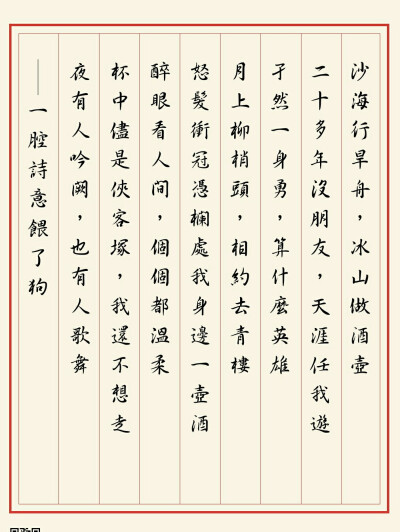 沙海行旱舟，冰山做酒壺
二十多年沒朋友，天涯任我遊
孑然一身勇，算什麼英雄
月上柳梢頭，相約去青樓
怒髮衝冠憑欄處我身邊一壺酒
醉眼看人间，個個都溫柔
杯中儘是俠客塚，我還不想走
夜有人吟阙，也有人歌舞
——一腔詩意餵了狗